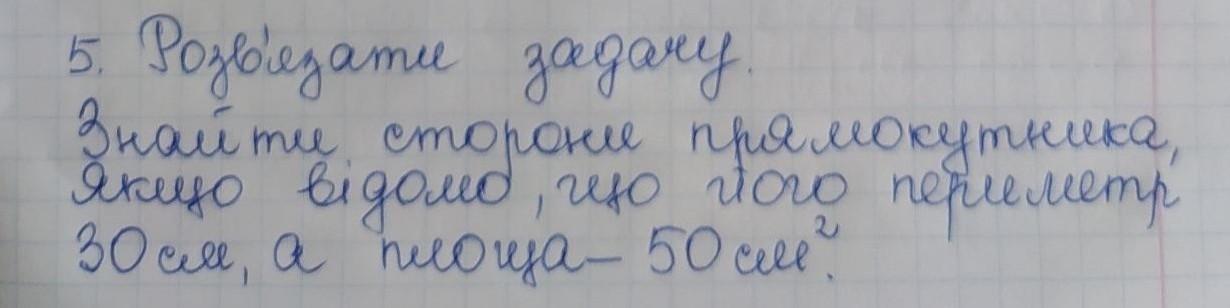 5. Розв'язати задачу.
Знайти сторони прямокутника,
якщо відомо, що його периметр
30 см, а площа – 50 см².